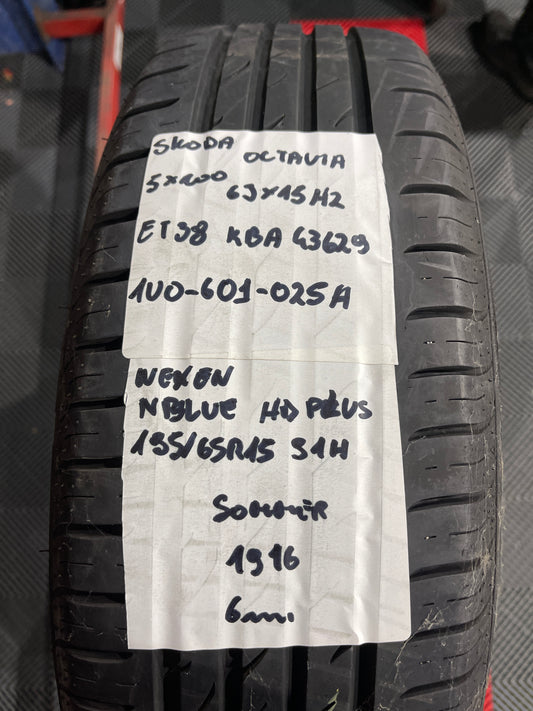 SKODA OCTAVIA
5x100 6Jx15H2
ET38 KBA 43629
1U0-601-025A
NEXEN
NBLUE HD PLUS
195/65R15 91H
SOMMER
1916
6mm.